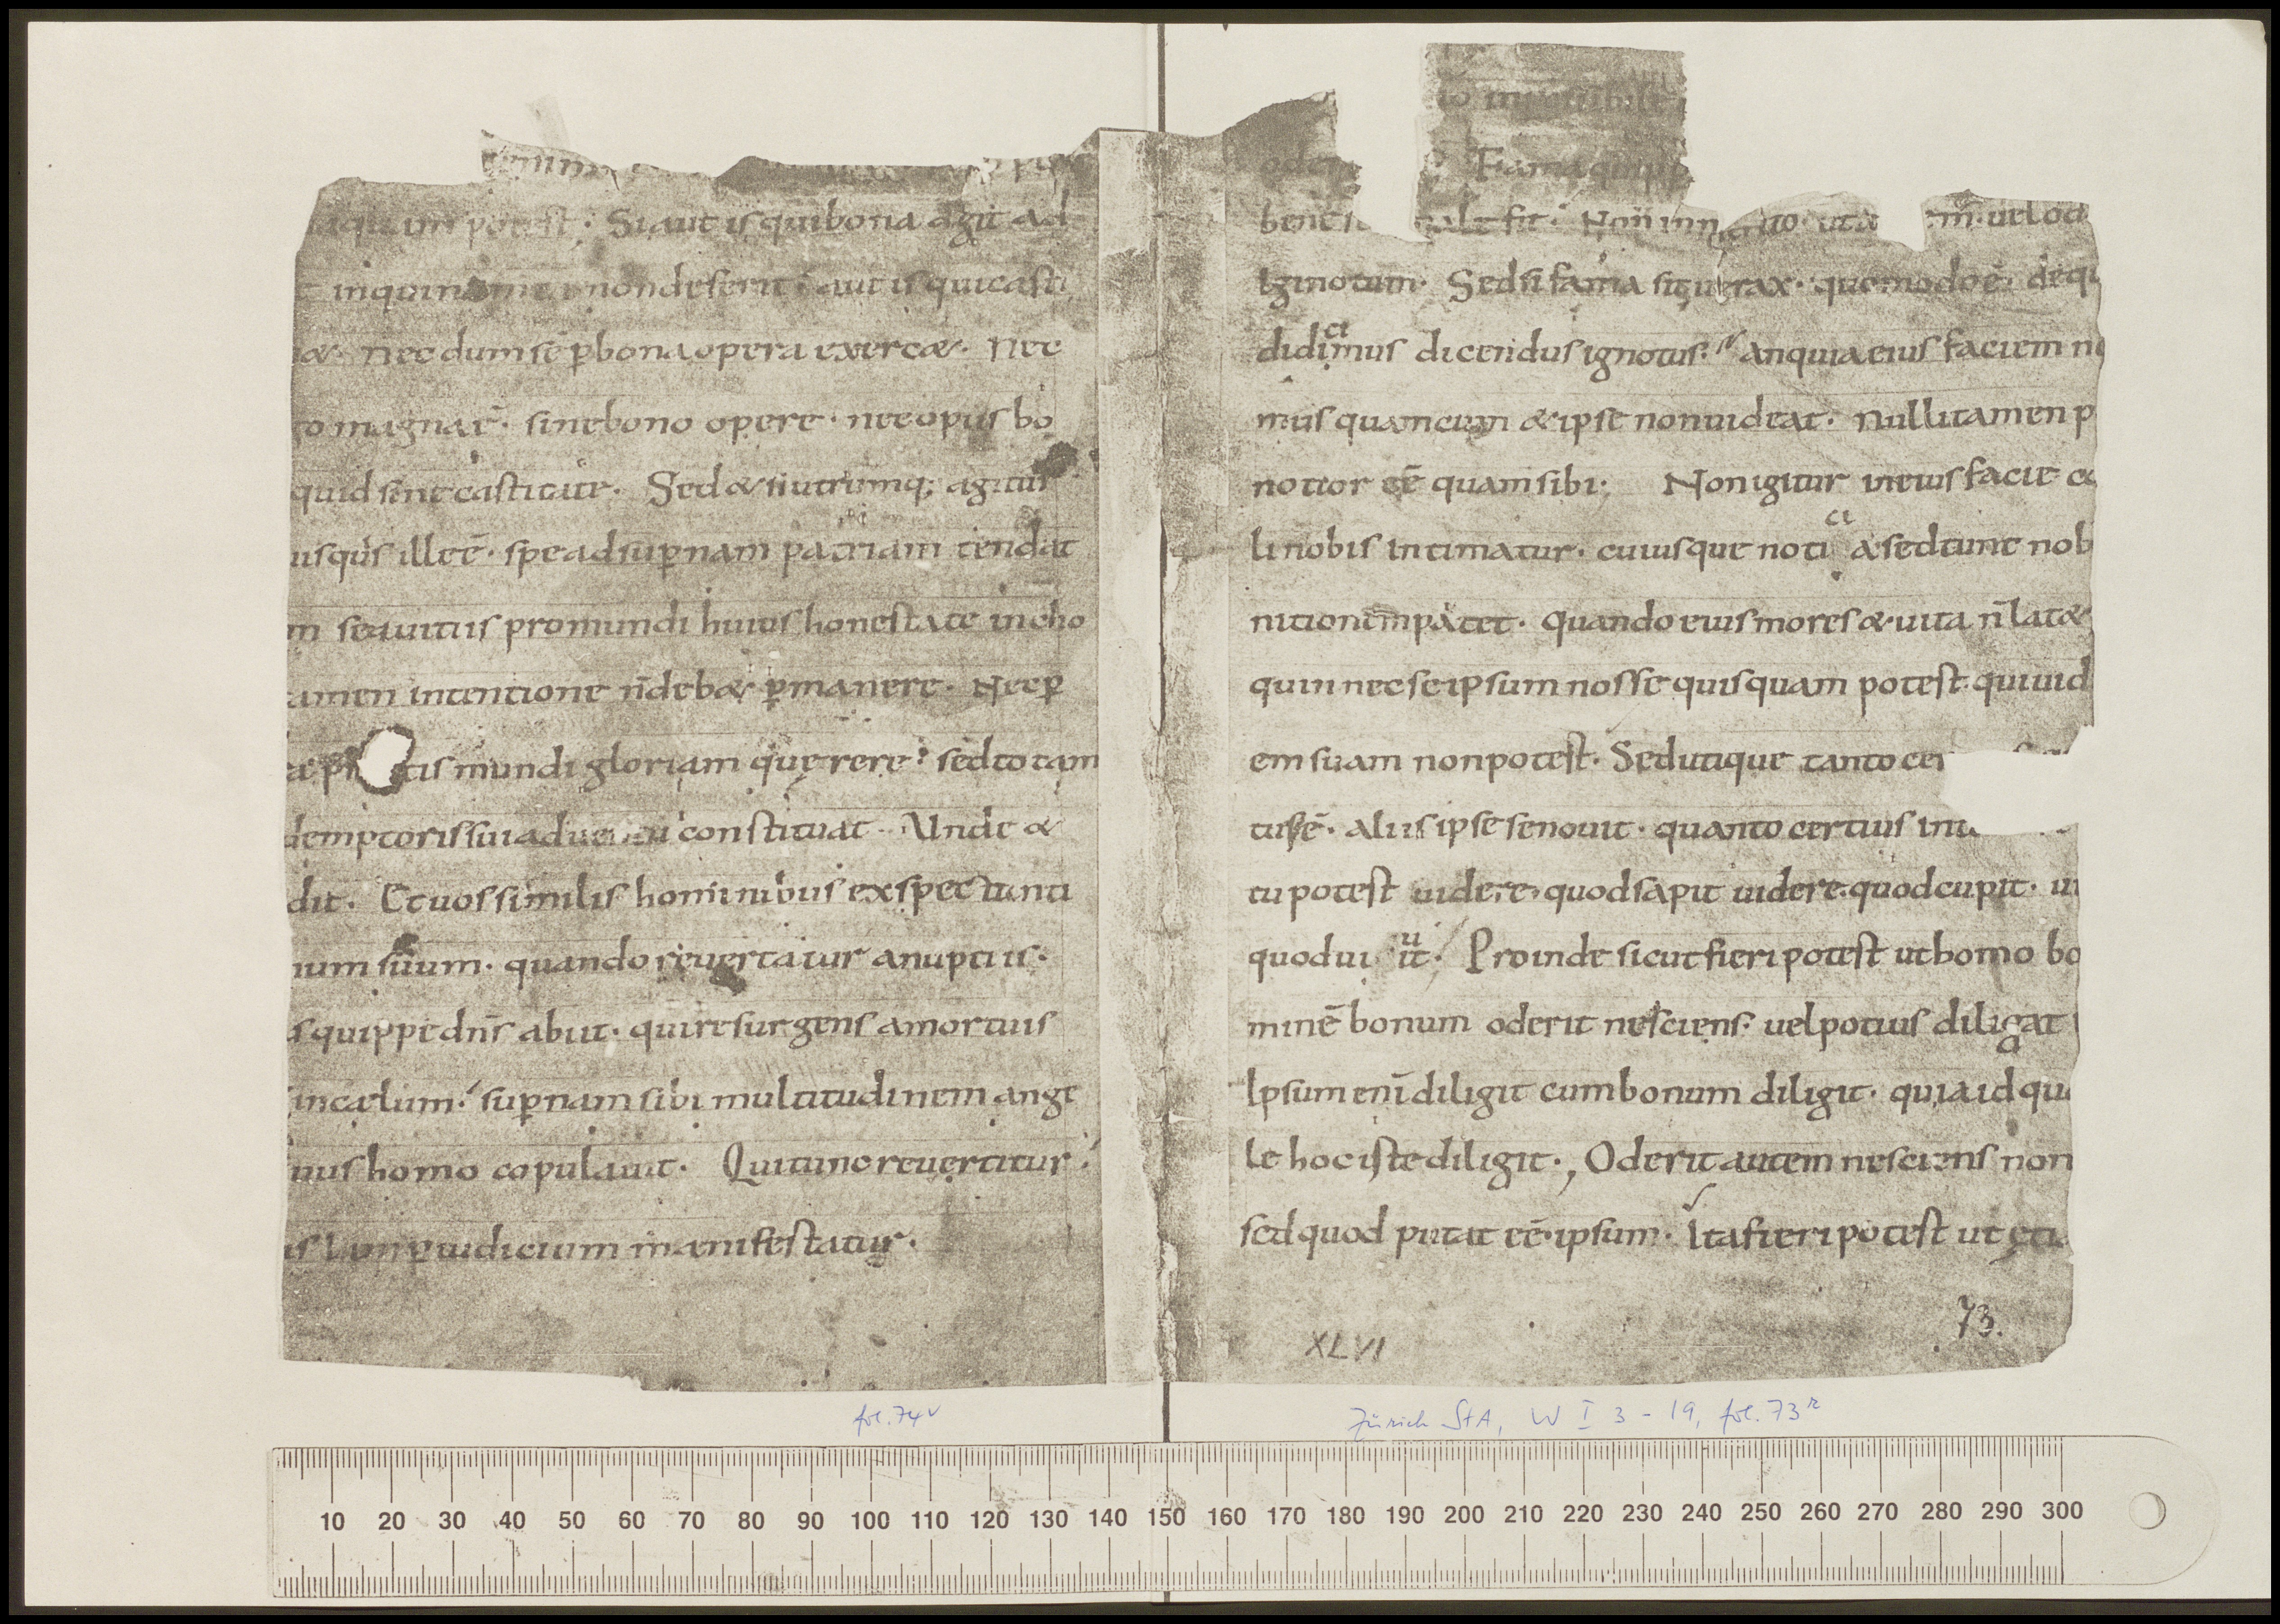 potest · Si aut is qui bona agit ad
inquinamenta non deserit · aut is qui casti
&· nec dum se p̱ bona opera exerc&· Nec
go magna ē· sine bono opere · nec opus bo
quid sine castitate · Sed & si utrumq; agitur
usquis ille ē· spe ad sup̱nam patriam tendat
m se a uitiis pro mundi huius honestate incho
amen intentione n̄ deb& p̱manere · Nec p̱
tis mundi gloriam quęrere · sed totam
demptoris sui aduentu constituat · Unde &
dit · Et uos similis hominibus exspectanti
num suum · quando reuertatur a nuptiis ·
s quippe dn̄s abiit · qui resurgens a mortuis
in cælum · sup̱nam sibi multitudinem ange
uus homo copulauit · Qui tunc reuertitur
is cum p̱ iudicium manifestatur ·
fol. 74v
Fama
bene
Ignotum · Sed si fama sit uerax · quomodo ē· de qu
didicimus dicendus ignotus · an quia eius faciem no
mus quamcum & ipse non uideat · Nulli tamen p
notior eē quam sibi · Non igitur in eius facie co
li nobis intimatur · cuiusque noti a sed tunc nob
nitionem patet · quando eius mores & uita n̄ lat&
quin nec se ipsum nosse quisquam potest qui uid
em suam non potest · Sed utique tanto cer
tus ē· aliis ipse se nouit · quanto certius int
tu potest uidere quod sapit uidere quod cupit · ui
quod uiuit · Proinde sicut fieri potest ut homo bo
minē bonum oderit nesciens · uel potius diligat
Ipsum eni̅ diligit cum bonum diligit · quia id qu
le hoc iste diligit · Oderit autem nesciens non
sed quod putat eē ipsum · Ita fieri potest ut eti
73.
XLVI
Zürich StA, W I 3 - 19, fol. 73r
10 20 30 40 50 60 70 80 90 100 110 120 130 140 150 160 170 180 190 200 210 220 230 240 250 260 270 280 290 300